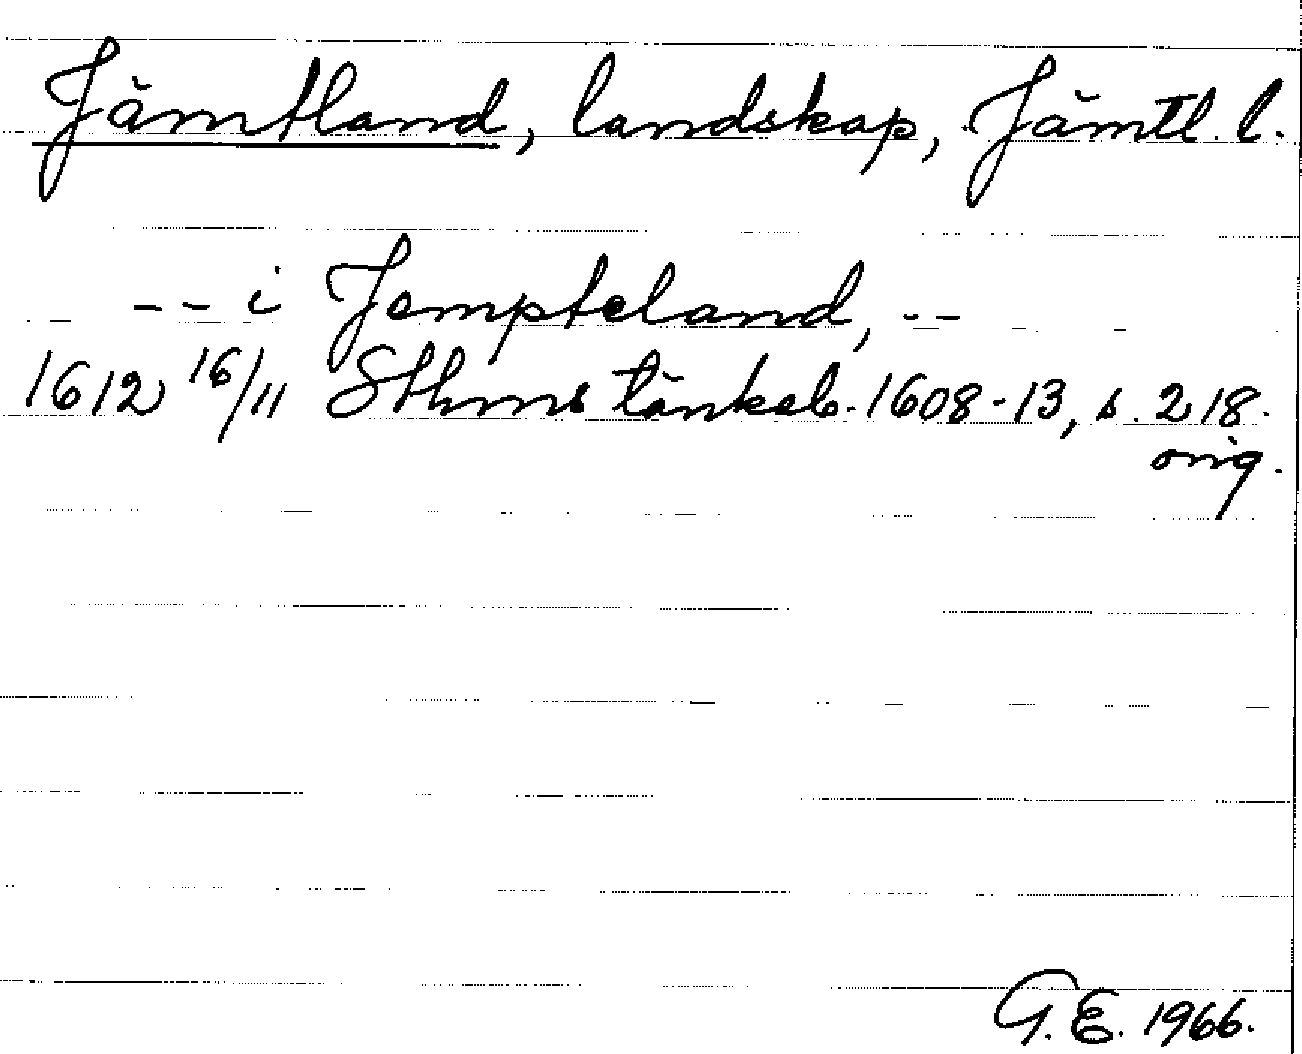 Jämtland, landskap, Jämtl. l.
-- i Jempteland, --
1612 16/11 Sthms tänkeb. 1608-13, s. 218.
orig.
G. E. 1966.